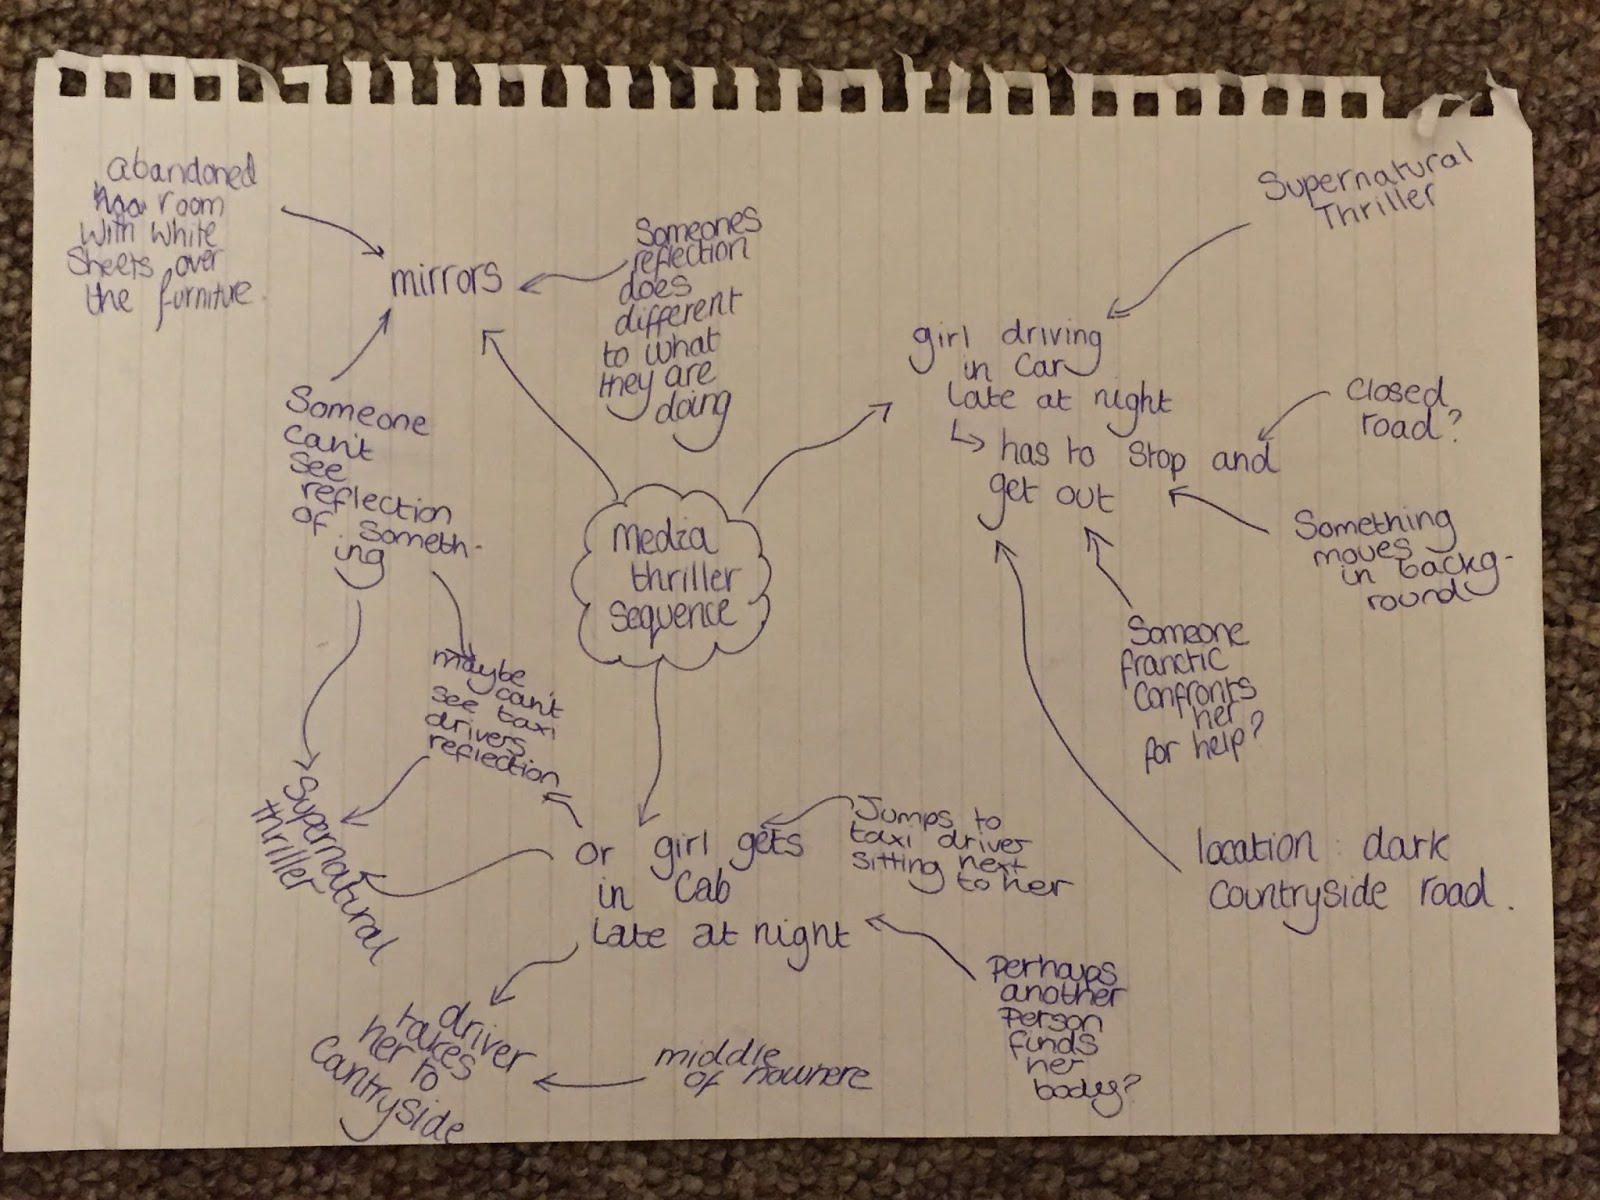 abandoned
room
with white
Sheets over
the furniture
mirrors
Someones
reflection
does
different
to what
they are
doing
Supernatural
Thriller
girl driving
in Car
Late at night
has to stop and
get out
Closed
road?
Something
moves
in backg-
round
Someone
franctic
Confronts
her
for help?
location : dark
Countryside road.
Someone
can't
see
reflection
of Someth-
ing
Media
thriller
Sequence
maybe
can't
see taxi
drivers
reflection
Supernatural
thriller
or girl gets
in Cab
Late at night
Jumps to
taxi driver
sitting next
to her
Perhaps
another
Person
finds
her
body?
driver
takes
her to
Countryside
middle
of nowhere